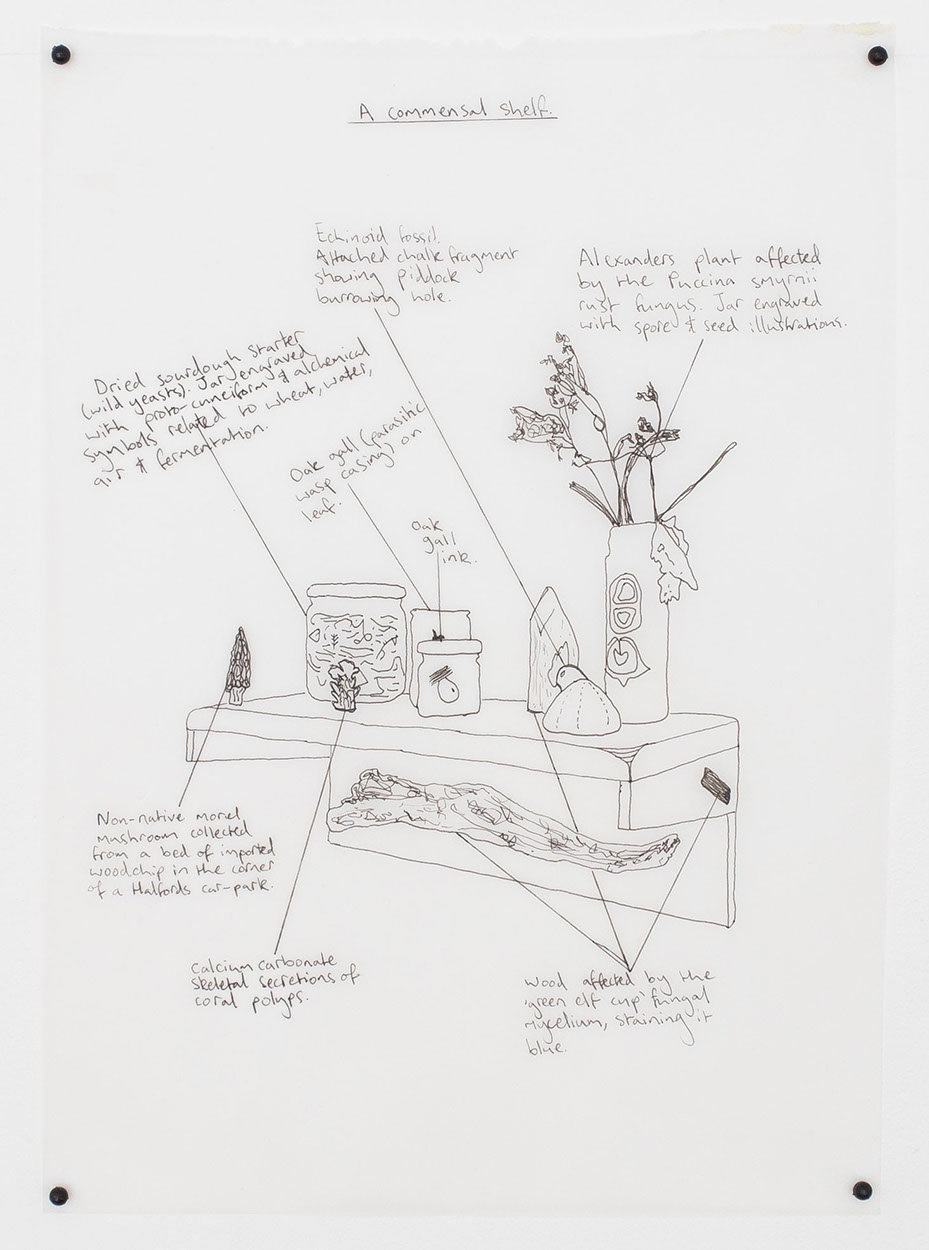 A commensal shelf.
Echinoid fossil.
Attached chalk fragment
showing piddock
burrowing hole.
Alexanders plant affected
by the Puccina smyrnii
rust fungus. Jar engraved
with spore & seed illustrations.
Dried sourdough starter
(wild yeasts). Jar engraved
with proto-cuneiform & alchemical
symbols related to wheat, water,
air & fermentation.
Oak gall (parasitic
wasp casing) on
leaf.
Oak
gall
ink.
Non-native morel
mushroom collected
from a bed of imported
woodchip in the corner
of a Halfords car-park.
Calcium carbonate
skeletal secretions of
coral polyps.
Wood affected by the
'green elf cup' fungal
mycelium, staining it
blue.